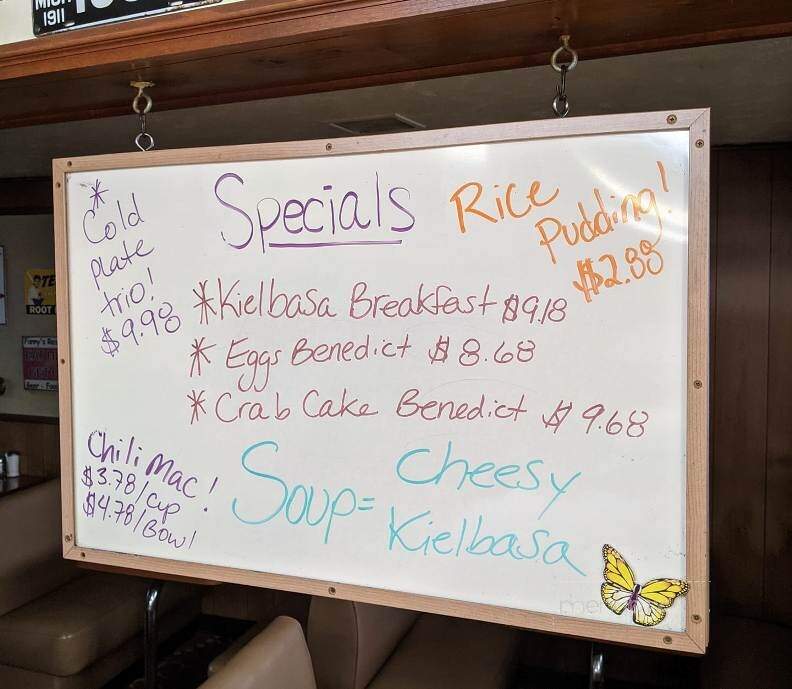 1911
Specials
*
Cold
plate
trio!
$9.98
Rice
Pudding!
$2.88
*Kielbasa Breakfast $9.18
* Eggs Benedict $8.68
* Crab Cake Benedict $9.68
Chili Mac!
$3.78/cup
$4.78/Bowl
Soup= Cheesy
Kielbasa
ROOT